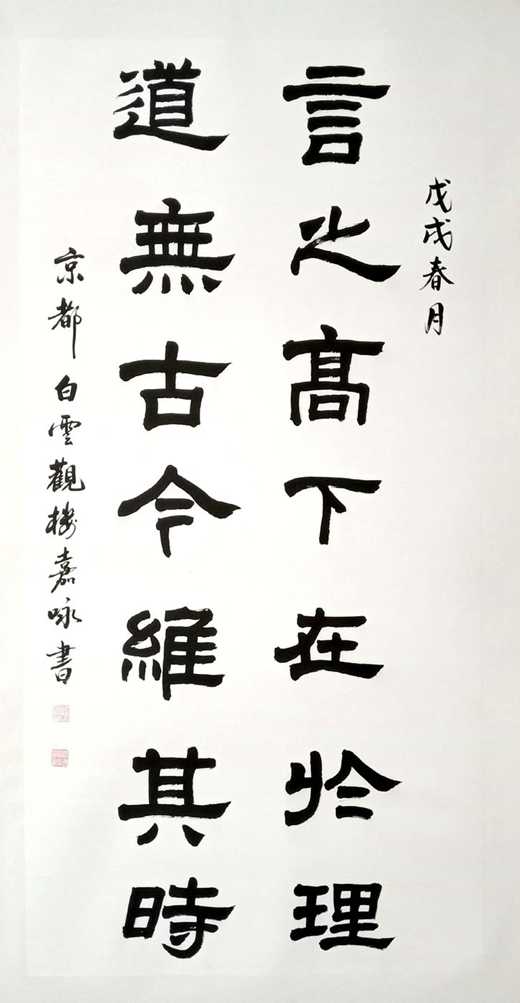 戊戌春月
言之高下在於理
道無古今維其時
京都白雲觀樓嘉咏書